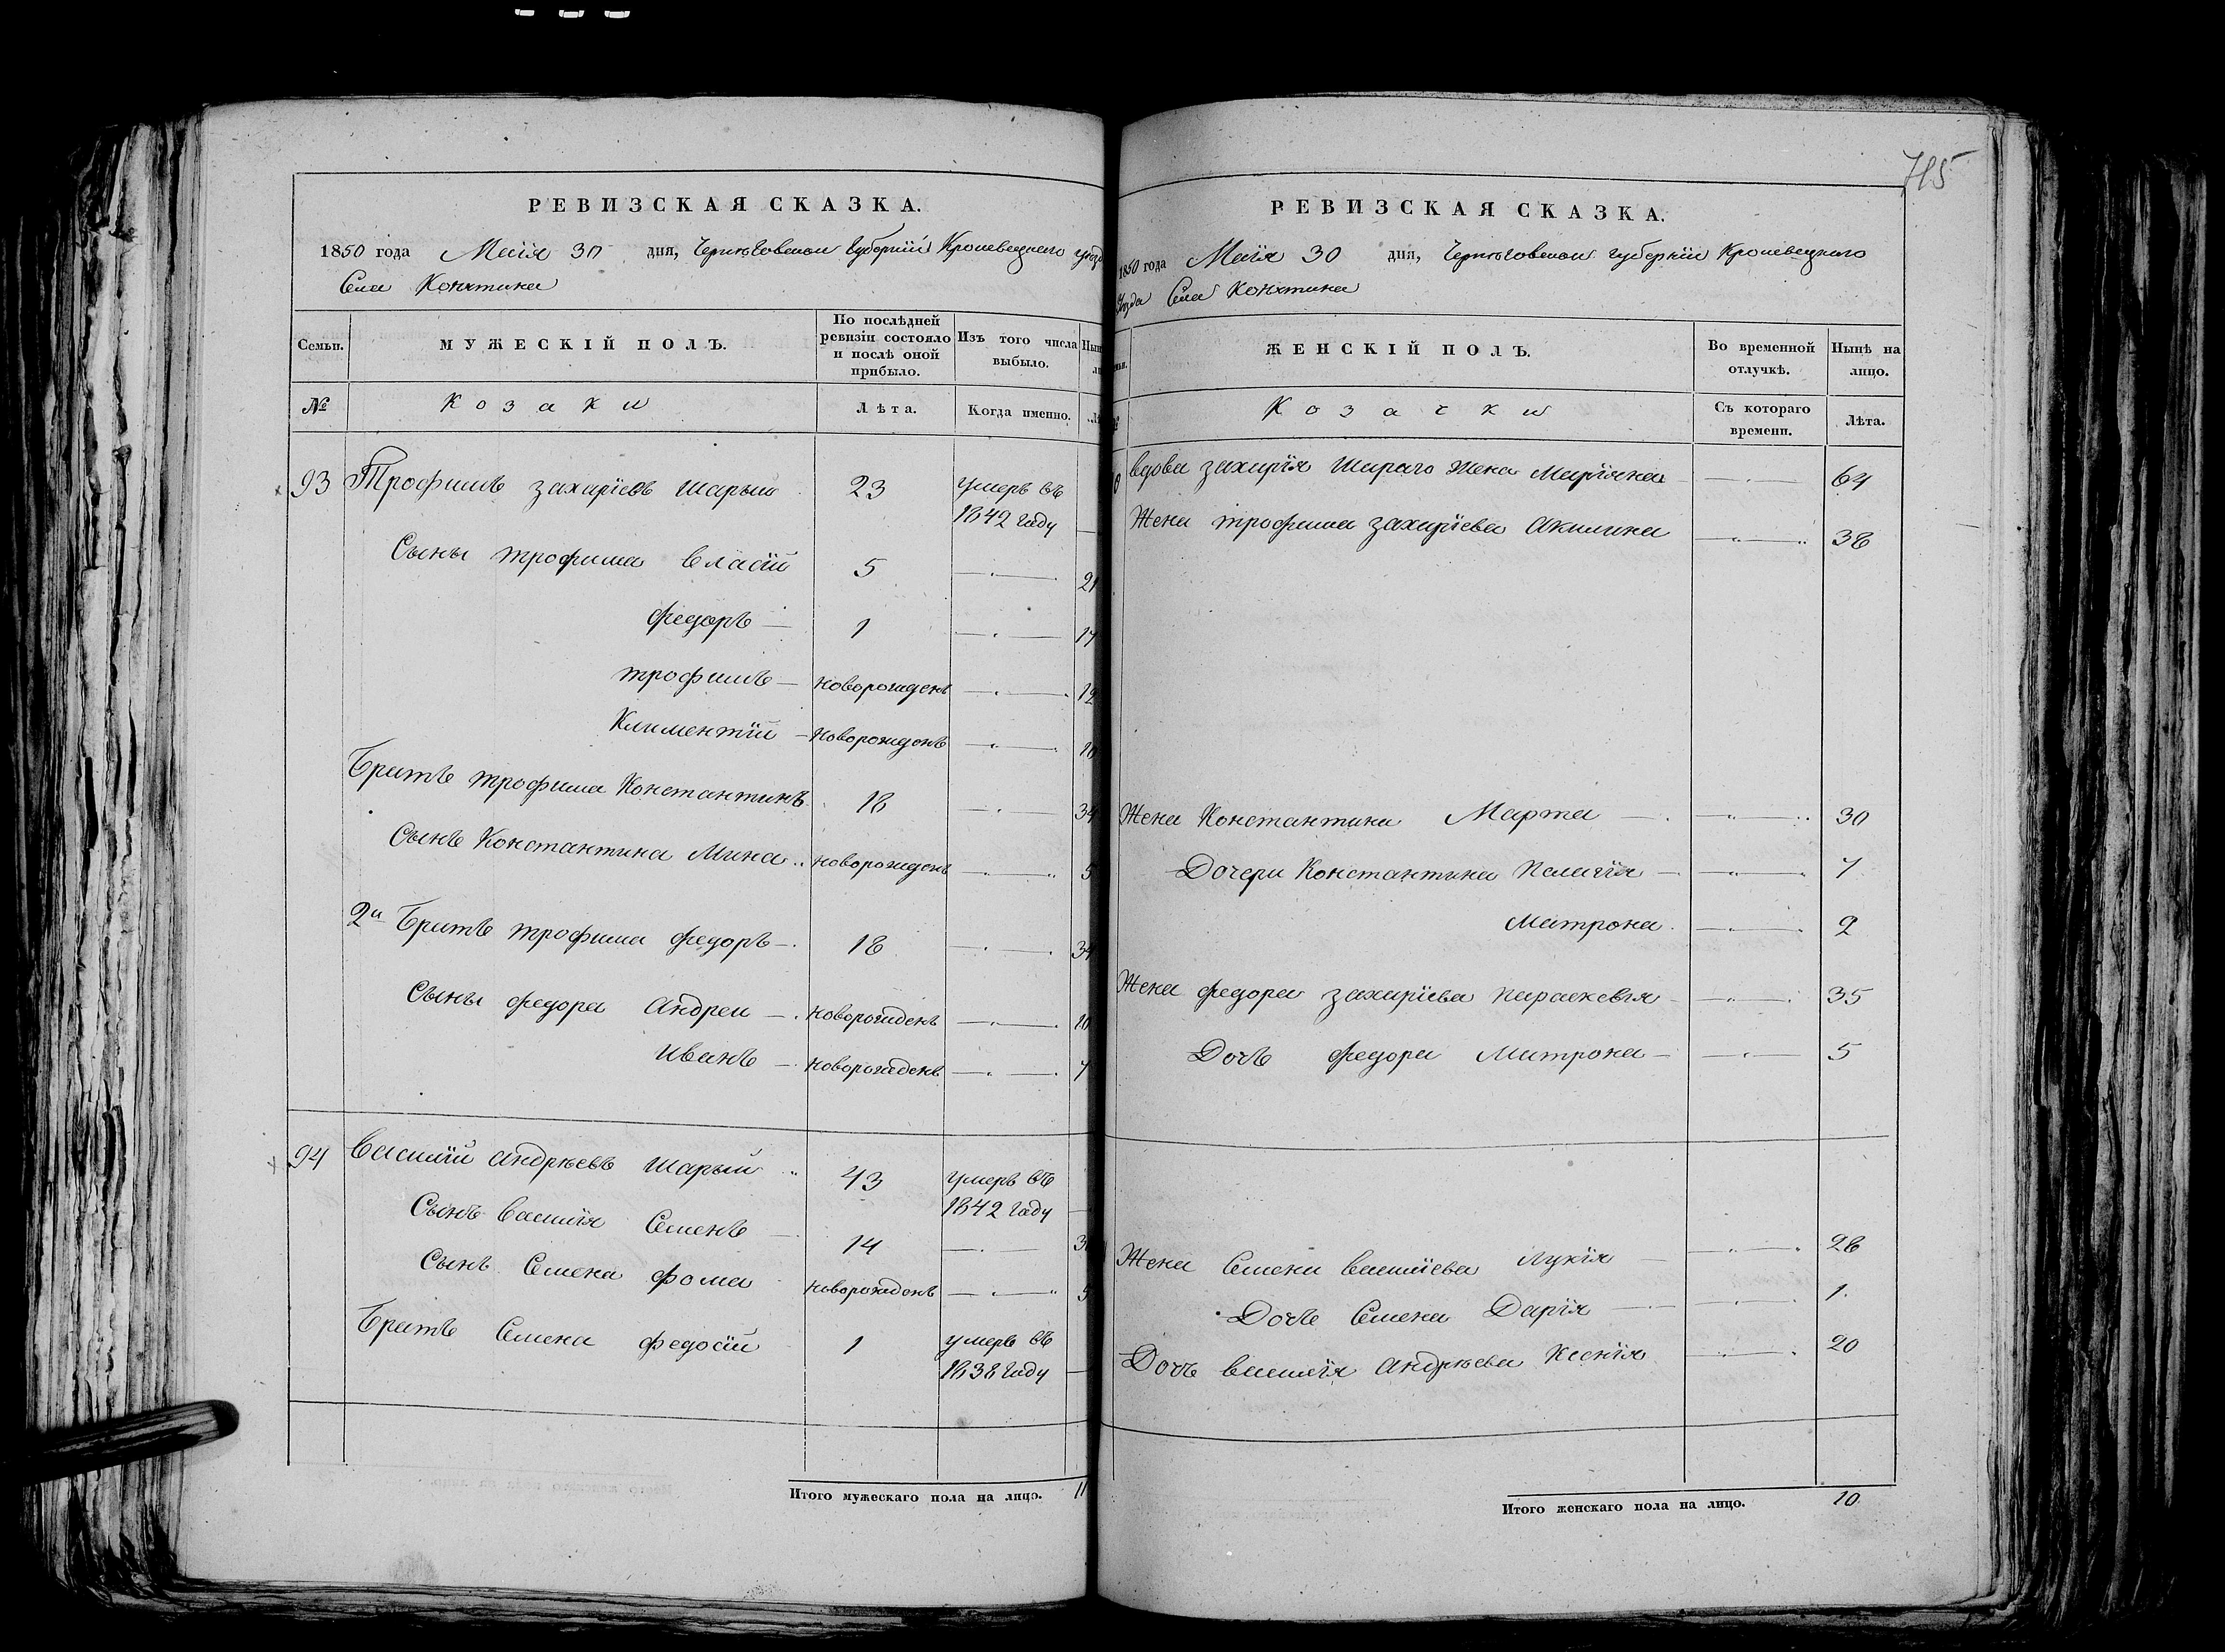 РЕВИЗСКАЯ СКАЗКА.
1850 года Маія 30 дня, Черниговской Губерніи Кролевецкаго уѣзд
Села Конятина
Семьи.
МУЖЕСКІЙ ПОЛЪ.
По послѣдней ревизіи состояло и послѣ оной прибыло.
Изъ того числа выбыло.
№
Козаки
Лѣта.
Когда именно.
93 Трофимъ Захаріевъ Шарый 23 умеръ въ
1842 году
Сыны Трофима Власій 5 21
Федоръ 1 17
Трофимъ новорожденъ 12
Климентій Новорожденъ 10
Братъ Трофима Константинъ 18 34
Сынъ Константина Мина новорожденъ 5
2й Братъ Трофима Федоръ 18 34
Сыны Федора Андрей новорожденъ 10
Иванъ новорожденъ 7
94 Василій Андрѣевъ Шарый 43 умеръ въ
1842 году
Сынъ Василія Семенъ 14
Сынъ Семена Фома новорожденъ 5
Братъ Семена Федосій 1 умеръ въ
1838 году
Итого мужескаго пола на лицо. 11
715
РЕВИЗСКАЯ СКАЗКА.
1850 года Маія 30 дня, Черниговской губерніи Кролевецкаго
Уѣзда Села Конятина
ЖЕНСКІЙ ПОЛЪ.
Во временной отлучкѣ.
Нынѣ на лицо.
Козачки
Съ котораго времени.
Лѣта.
вдова Захарія Шараго Жена Маріяна 64
Жена Трофима Захаріева Акилина 38
Жена Константина Марта 30
Дочери Константина Пелагія 7
Матрона 2
Жена Федора Захаріева Параскевія 35
Дочь Федора Матрона 5
Жена Семена Васильева Лукія 28
Дочь Семена Дарія 1
Дочь Василія Андрѣева Ксенія 20
Итого женскаго пола на лицо. 10